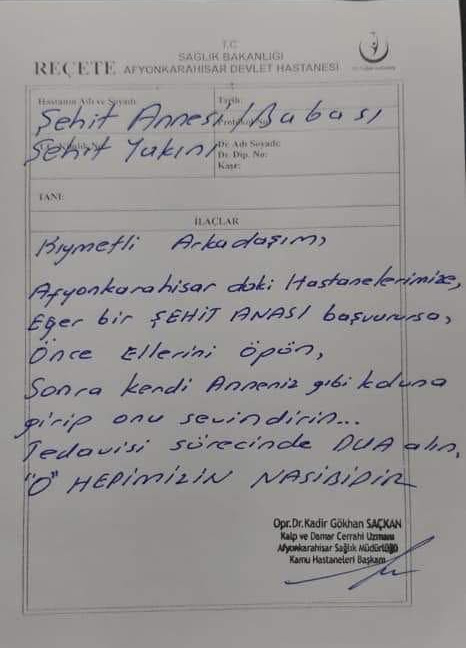 T.C.
SAĞLIK BAKANLIĞI
REÇETE AFYONKARAHİSAR DEVLET HASTANESİ
Hastanın Adı ve Soyadı
Tarih
Şehit Annesi/Babası
Şehit Yakını
Dr. Adı Soyadı:
Dr. Dip. No:
Kaşe:
TANI:
İLAÇLAR
Kıymetli Arkadaşım,
Afyonkarahisar daki Hastanelerimize,
Eğer bir ŞEHİT ANASI başvurursa,
Önce Ellerini öpün,
Sonra kendi Anneniz gibi koluna
girip onu sevindirin...
Tedavisi sürecinde DUA alın,
"O" HEPİMİZİN NASİBİDİR
Opr.Dr.Kadir Gökhan SAÇKAN
Kalp ve Damar Cerrahi Uzmanı
Afyonkarahisar Sağlık Müdürlüğü
Kamu Hastaneleri Başkanı